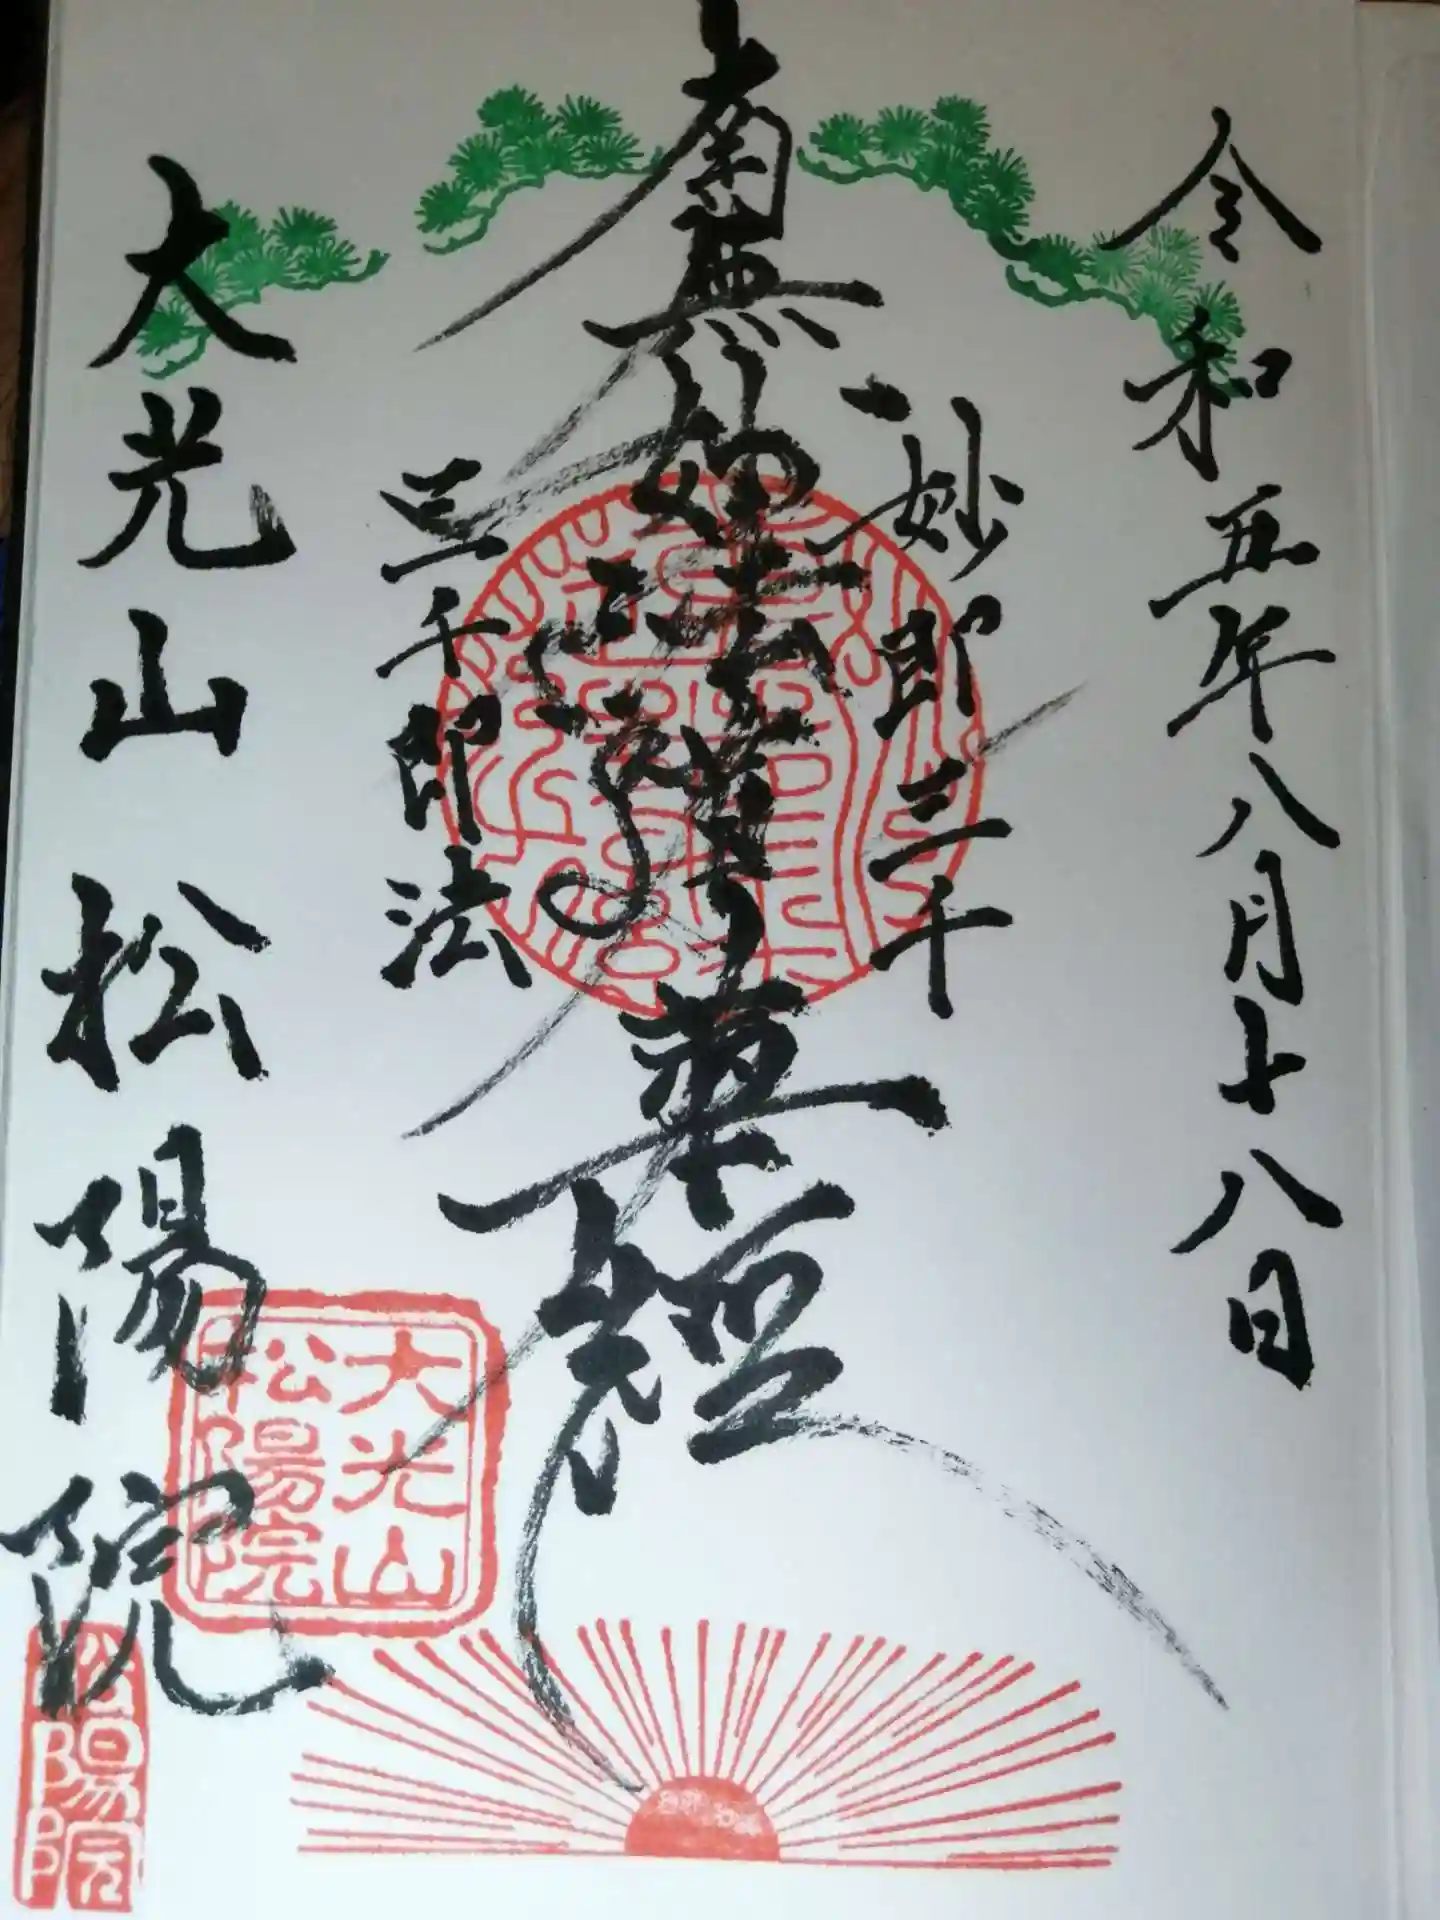 令和五年八月十八日
妙即三千
南無妙法蓮華経
三千即法
大光山松陽院
大光山
松陽院
松陽院